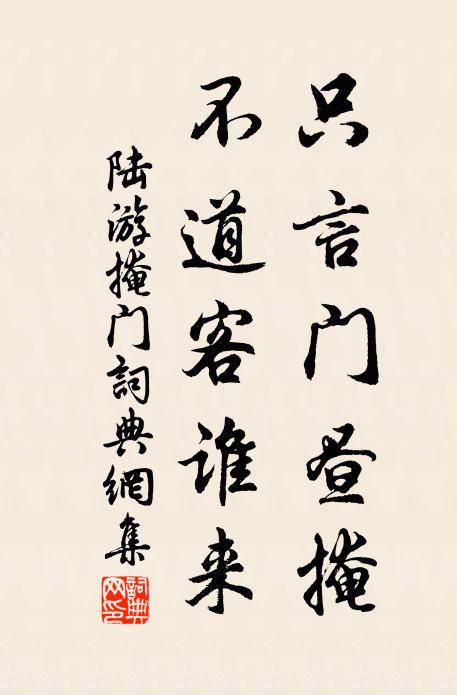 只言门昼掩
不道客谁来
陆游掩门詞典網集
詞典网印